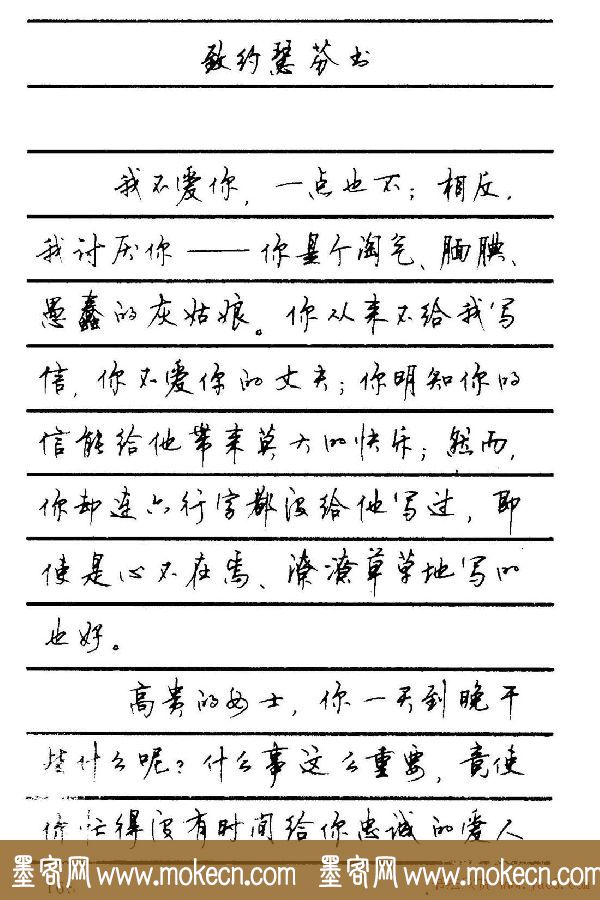 致约瑟芬书
我不爱你，一点也不；相反，
我讨厌你——你是个淘气、腼腆、
愚蠢的灰姑娘。你从来不给我写
信，你不爱你的丈夫；你明知你的
信能给他带来莫大的快乐；然而，
你却连六行字都没给他写过，即
使是心不在焉、潦潦草草地写的
也好。
高贵的女士，你一天到晚干
些什么呢？什么事这么重要，竟使
你忙得没有时间给你忠诚的爱人
墨客网 www.mokecn.com 墨客网 www.mokecn.com